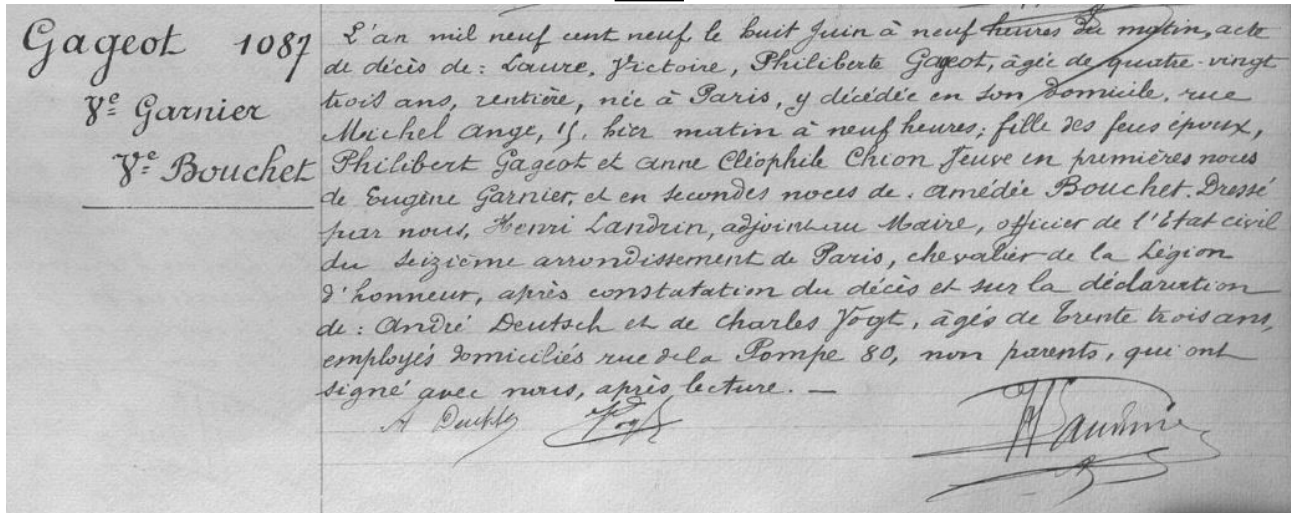 Gageot 1087
Vᵉ Garnier
Vᵉ Bouchet
L'an mil neuf cent neuf le huit Juin à neuf heures du matin, acte
de décès de : Laure, Victoire, Philiberte Gageot, âgée de quatre-vingt
trois ans, rentière, née à Paris, y décédée en son domicile, rue
Michel Ange, 15, hier matin à neuf heures ; fille des feus époux,
Philibert Gageot et Anne Cléophile Chion Veuve en premières noces
de Eugène Garnier, et en secondes noces de . Amédée Bouchet. Dressé
par nous, Henri Landrin, adjoint au Maire, officier de l'Etat civil
du Seizième arrondissement de Paris, chevalier de la Légion
d'honneur, après constatation du décès et sur la déclaration
de : André Deutsch et de Charles Vogt, âgés de trente trois ans,
employés domiciliés rue de la Pompe 80, non parents, qui ont
signé avec nous, après lecture. —
A Deutsch Vogt Landrin